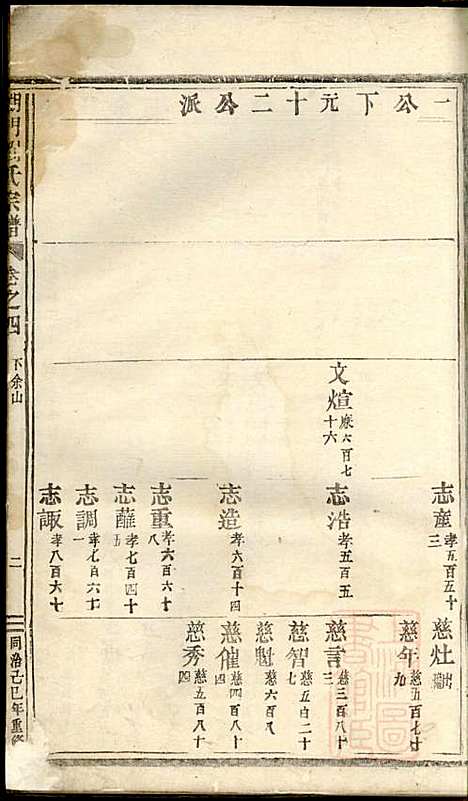 一公下元十二公派
志童 孝五百五十三
慈灶 出繼
慈年 慈五百七十九
文煊 廒六百七十六
志浩 孝五百五
慈言 慈三百八十三
慈智 慈五百二十七
慈魁 慈六百八
志造 孝六百十四
慈催 慈四百八十四
慈秀 慈五百八十四
志重 孝六百六十八
志蘸 孝七百四十五
志調 孝七百六十一
志諏 孝八百六十
門 氏宗譜
卷之四
下余山
二
同治己巳年重修